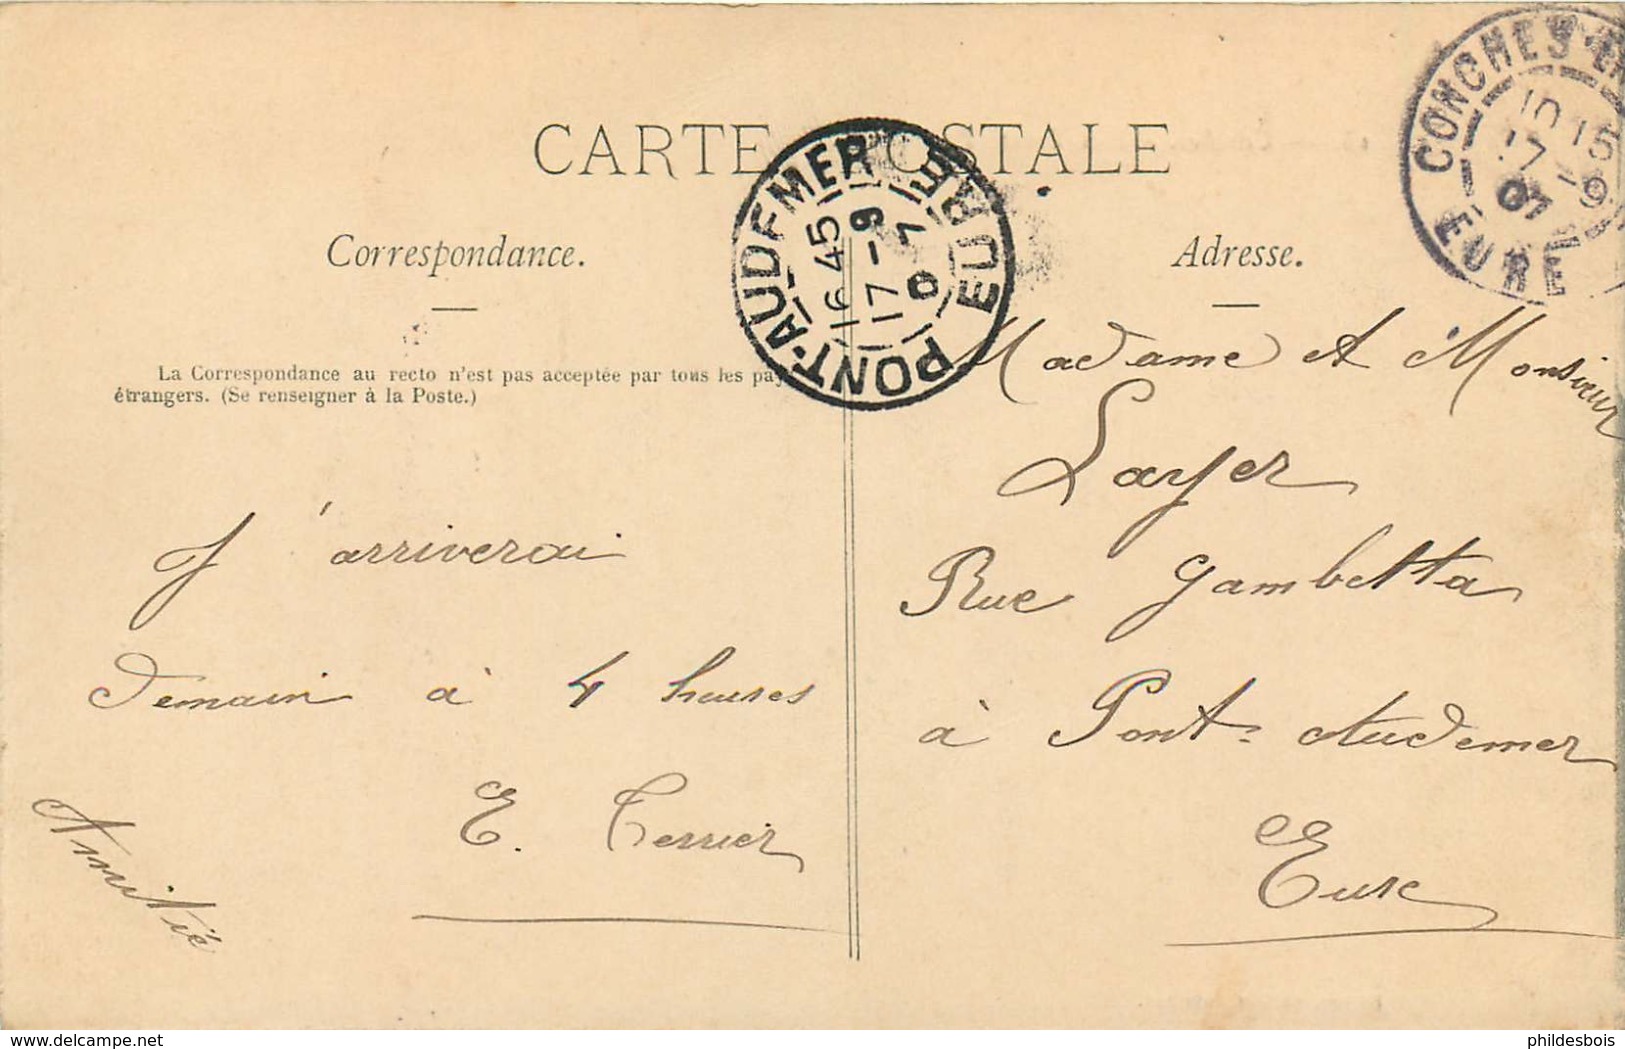 CARTE POSTALE
Correspondance.
La Correspondance au recto n'est pas acceptée par tous les pay
étrangers. (Se renseigner à la Poste.)
J'arriverai
Demain à 4 heures
E. Terrier
Amitié
PONT-AUDEMER EURE
16 45
17 - 9
07
CONCHES-EN
10 15
17 - 9
07
EURE
Adresse.
Madame et Monsieur
Layer
Rue Gambetta
à Pont-Audemer
Eure
delcampe.net
phildesbois